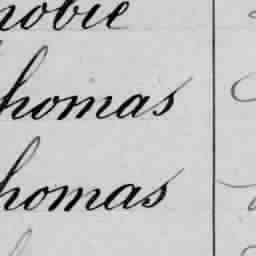 nobie
homas
homas